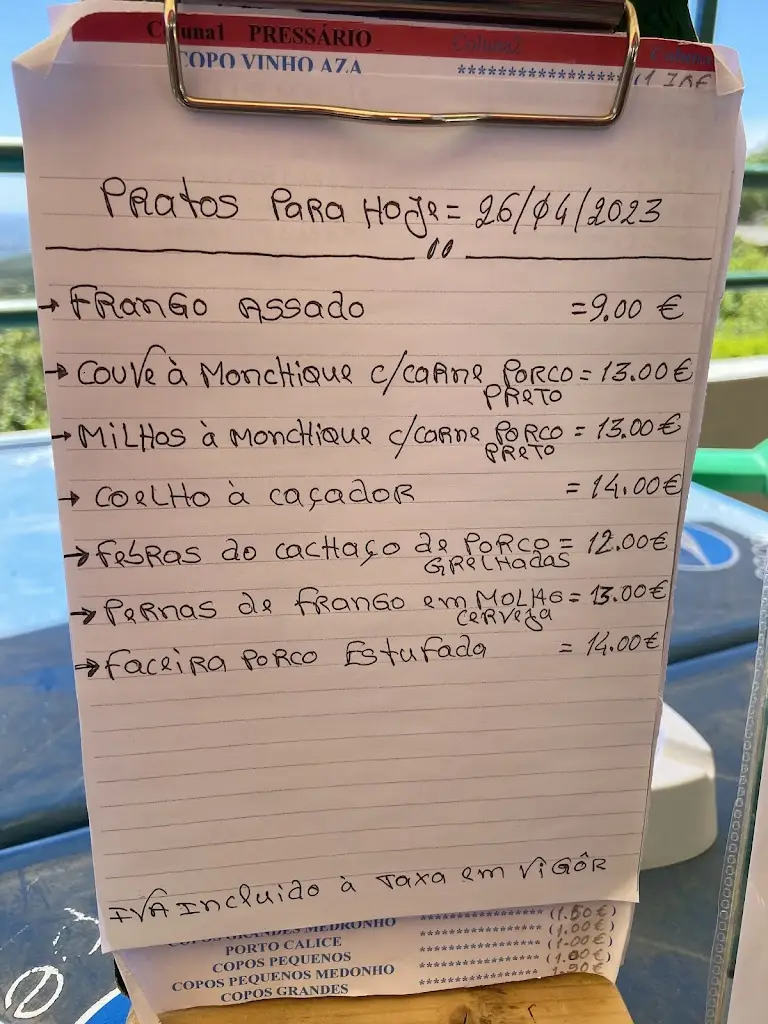 Coluna1 PRESSÁRIO Coluna2
COPO VINHO AZA ********************
PRatos PaRa HoJe = 26/04/2023
→ FRanGo assado = 9.00 €
→ Couve à MoncHique c/caRne PoRco = 13.00 €
PReto
→ MiLHos à MoncHique c/caRne PoRco = 13.00 €
PReto
→ CoeLHo à caçadoR = 14.00 €
→ FebRas do cacHaço de PoRco = 12.00 €
GReLHadas
→ PeRnas de FRanGo em MoLHo = 13.00 €
ceRveja
→ FaceiRa PoRco Estufada = 14.00 €
IVA IncLuido à Taxa em ViGôR
COPOS GRANDES MEDRONHO **************** (1.50 €)
PORTO CALICE **************** (1.00 €)
COPOS PEQUENOS **************** (1.00 €)
COPOS PEQUENOS MEDONHO **************** (1.00 €)
COPOS GRANDES